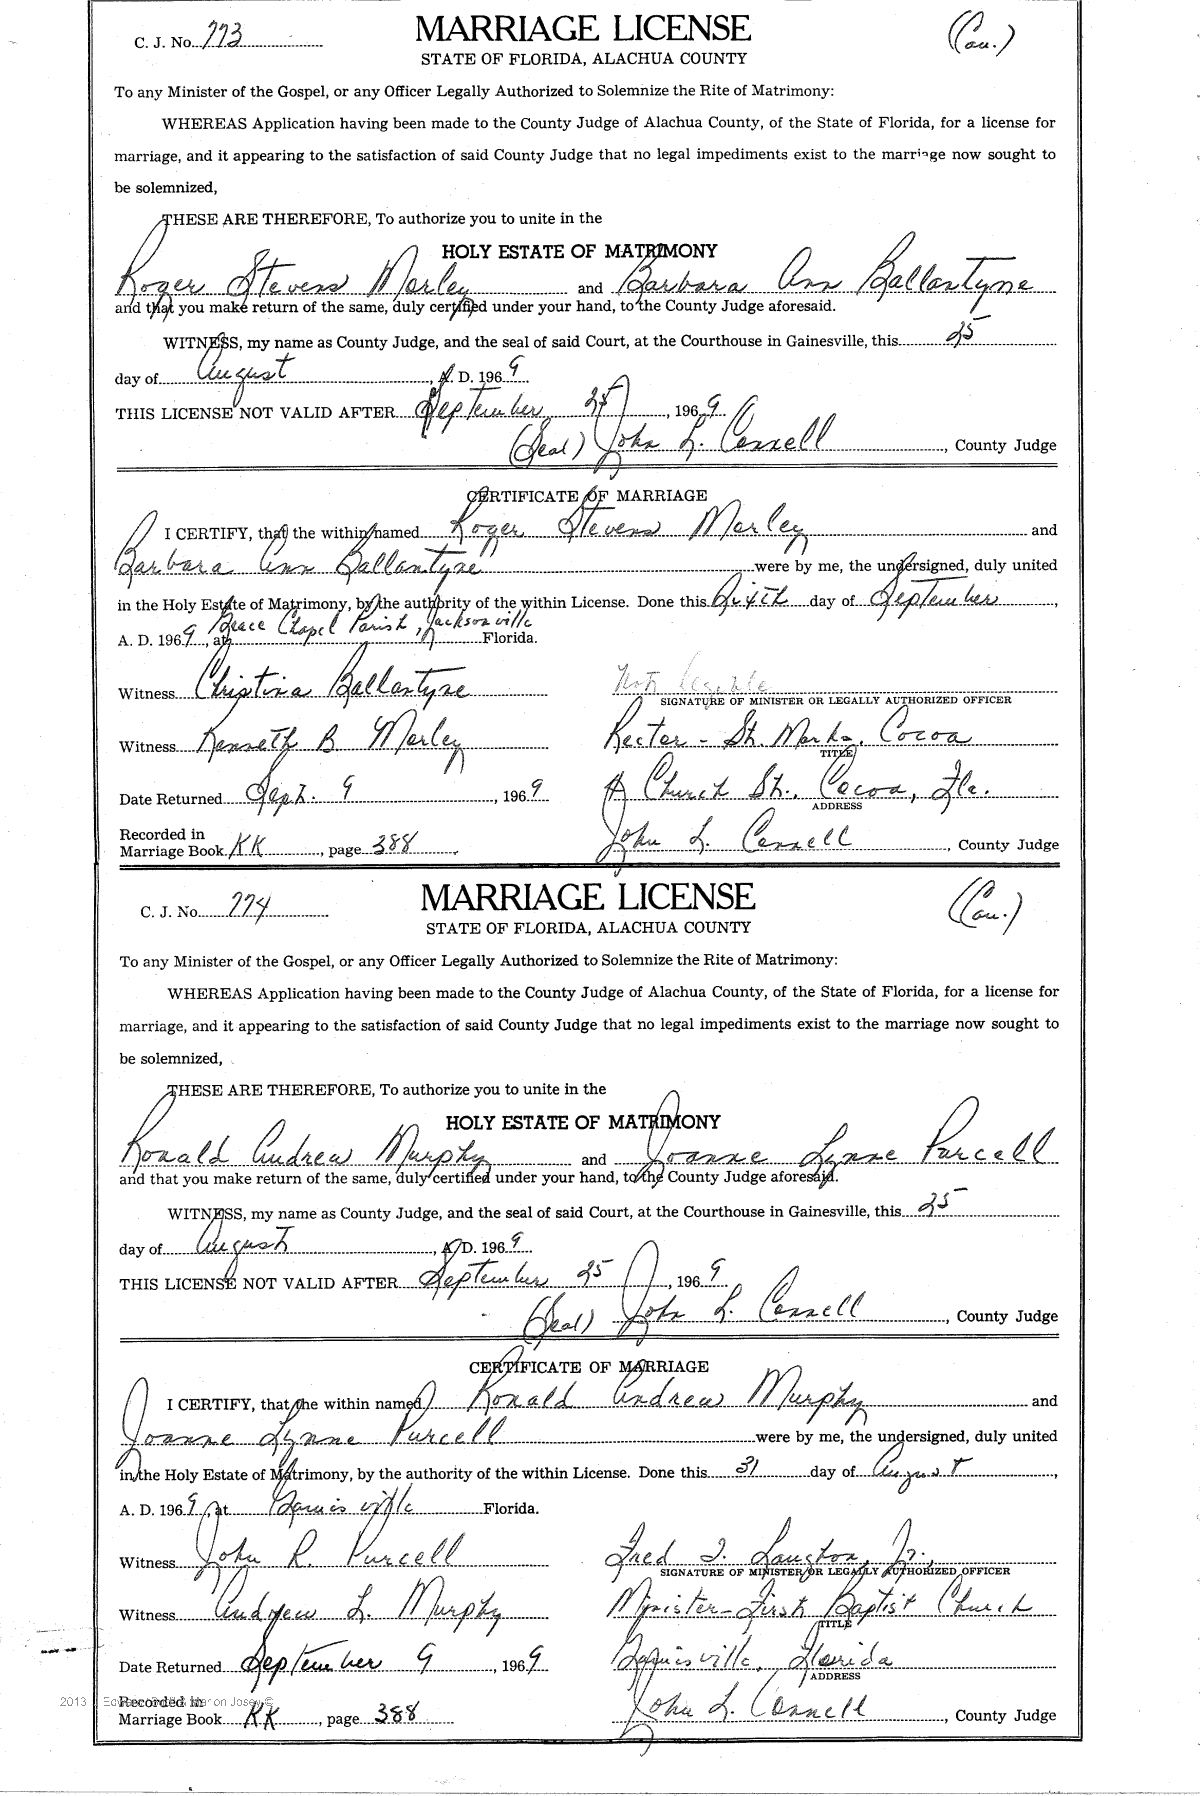 C. J. No. 773
MARRIAGE LICENSE
(Cau.)
STATE OF FLORIDA, ALACHUA COUNTY
To any Minister of the Gospel, or any Officer Legally Authorized to Solemnize the Rite of Matrimony:
WHEREAS Application having been made to the County Judge of Alachua County, of the State of Florida, for a license for
marriage, and it appearing to the satisfaction of said County Judge that no legal impediments exist to the marriage now sought to
be solemnized,
THESE ARE THEREFORE, To authorize you to unite in the
HOLY ESTATE OF MATRIMONY
Roger Stevens Morley and Barbara Ann Ballantyne
and that you make return of the same, duly certified under your hand, to the County Judge aforesaid.
WITNESS, my name as County Judge, and the seal of said Court, at the Courthouse in Gainesville, this 25
day of August, A. D. 1969
THIS LICENSE NOT VALID AFTER September 25, 1969
(Seal) John L. Connell, County Judge
CERTIFICATE OF MARRIAGE
I CERTIFY, that the within named Roger Stevens Morley and
Barbara Ann Ballantyne were by me, the undersigned, duly united
in the Holy Estate of Matrimony, by the authority of the within License. Done this Sixth day of September,
A. D. 1969, at Grace Chapel Parish, Jacksonville Florida.
Witness Christina Ballantyne
Not legible
SIGNATURE OF MINISTER OR LEGALLY AUTHORIZED OFFICER
Witness Kenneth B Morley
Rector - St. Marks, Cocoa
TITLE
Date Returned Sept. 9, 1969
4 Church St., Cocoa, Fla.
ADDRESS
Recorded in
Marriage Book KK, page 388
John L. Connell, County Judge
C. J. No. 774
MARRIAGE LICENSE
(Cau.)
STATE OF FLORIDA, ALACHUA COUNTY
To any Minister of the Gospel, or any Officer Legally Authorized to Solemnize the Rite of Matrimony:
WHEREAS Application having been made to the County Judge of Alachua County, of the State of Florida, for a license for
marriage, and it appearing to the satisfaction of said County Judge that no legal impediments exist to the marriage now sought to
be solemnized,
THESE ARE THEREFORE, To authorize you to unite in the
HOLY ESTATE OF MATRIMONY
Ronald Andrew Murphy and Joanne Lynne Purcell
and that you make return of the same, duly certified under your hand, to the County Judge aforesaid.
WITNESS, my name as County Judge, and the seal of said Court, at the Courthouse in Gainesville, this 25
day of August, A. D. 1969
THIS LICENSE NOT VALID AFTER September 25, 1969
(Seal) John L. Connell, County Judge
CERTIFICATE OF MARRIAGE
I CERTIFY, that the within named Ronald Andrew Murphy and
Joanne Lynne Purcell were by me, the undersigned, duly united
in the Holy Estate of Matrimony, by the authority of the within License. Done this 31 day of August,
A. D. 1969, at Gainesville Florida.
Witness John R. Purcell
Fred T. Laughon, Jr.,
SIGNATURE OF MINISTER OR LEGALLY AUTHORIZED OFFICER
Witness Andrew L. Murphy
Minister-First Baptist Church
TITLE
Date Returned September 9, 1969
Gainesville, Florida
ADDRESS
2013
Recorded in
Marriage Book KK, page 388
John L. Connell, County Judge